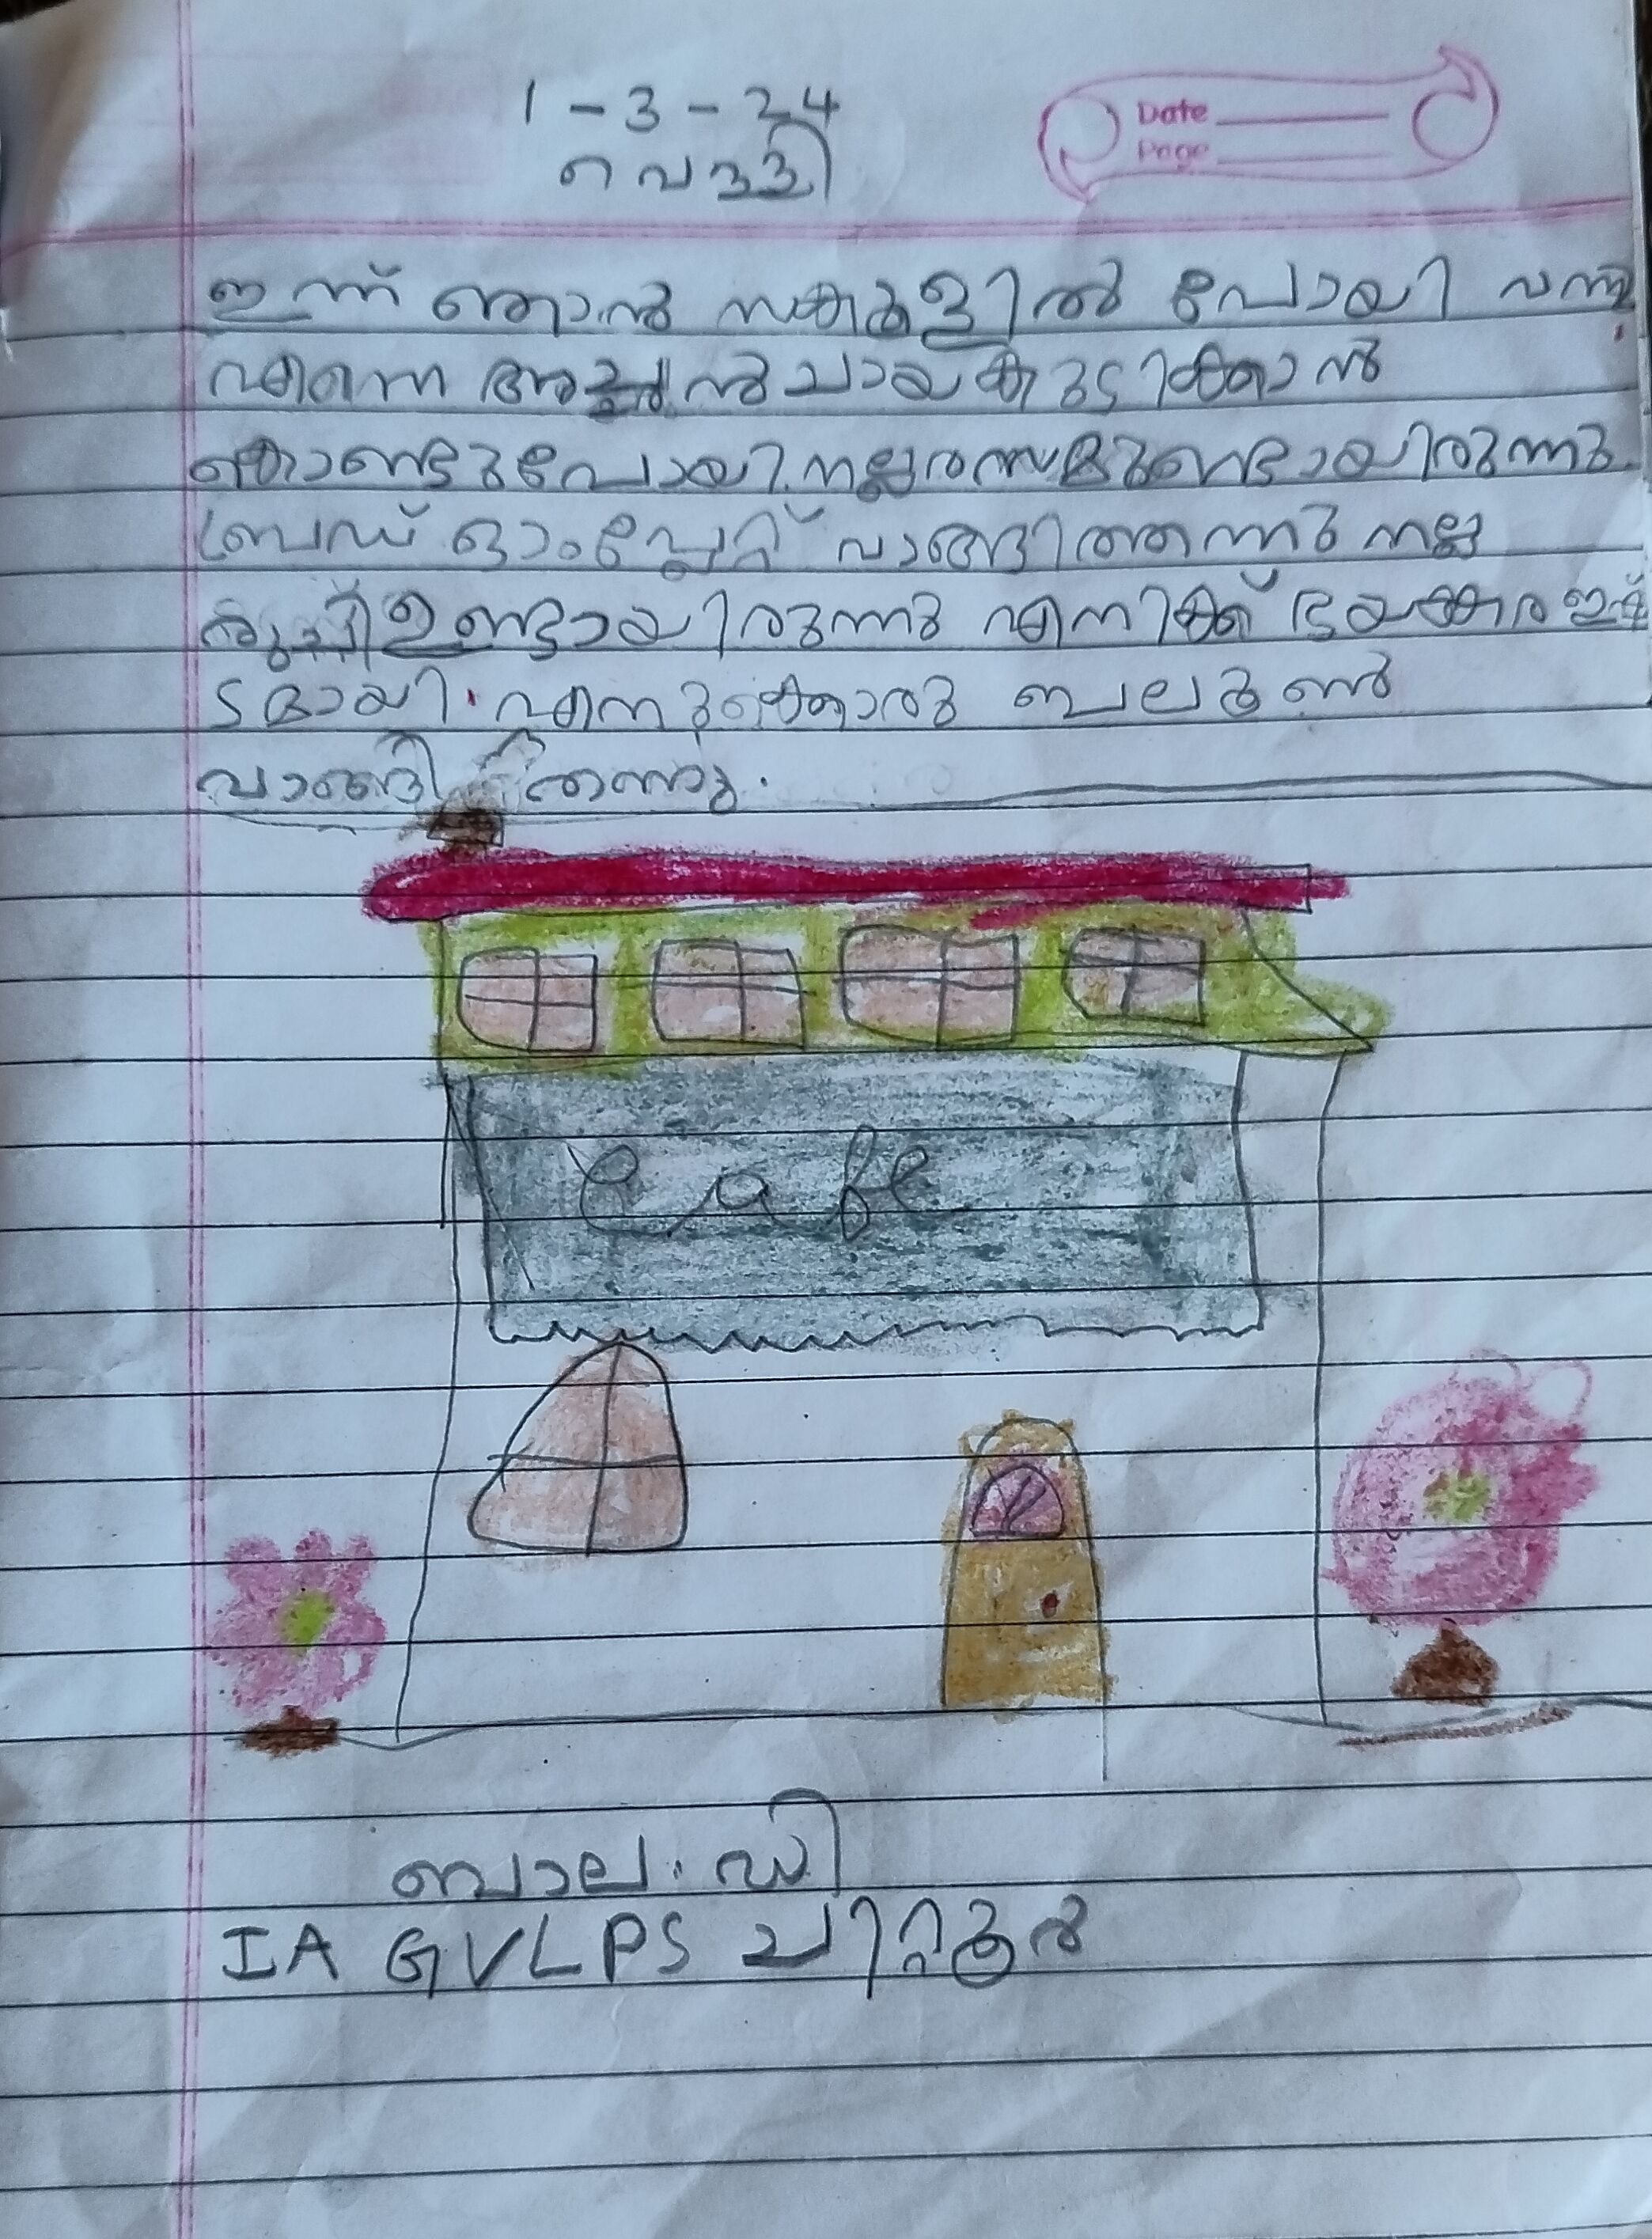 1-3-24
Date
Page
വെള്ളി
ഇന്ന് ഞാൻ സ്കൂളിൽ പോയി വന്നു
എന്നെ അച്ഛൻ ചായകുടിക്കാൻ
കൊണ്ടുപോയി. നല്ലരസമുണ്ടായിരുന്നു.
ബ്രെഡ് ഓംപ്ലേറ്റ് വാങ്ങിത്തന്നു നല്ല
രുചി ഉണ്ടായിരുന്നു എനിക്ക് ഭയങ്കര ഇഷ്
ടമായി. എനുക്കൊരു ബലൂൺ
വാങ്ങി തന്നു.
Cafe
ബാല. ഡി
IA GVLPS ചിറ്റൂർ